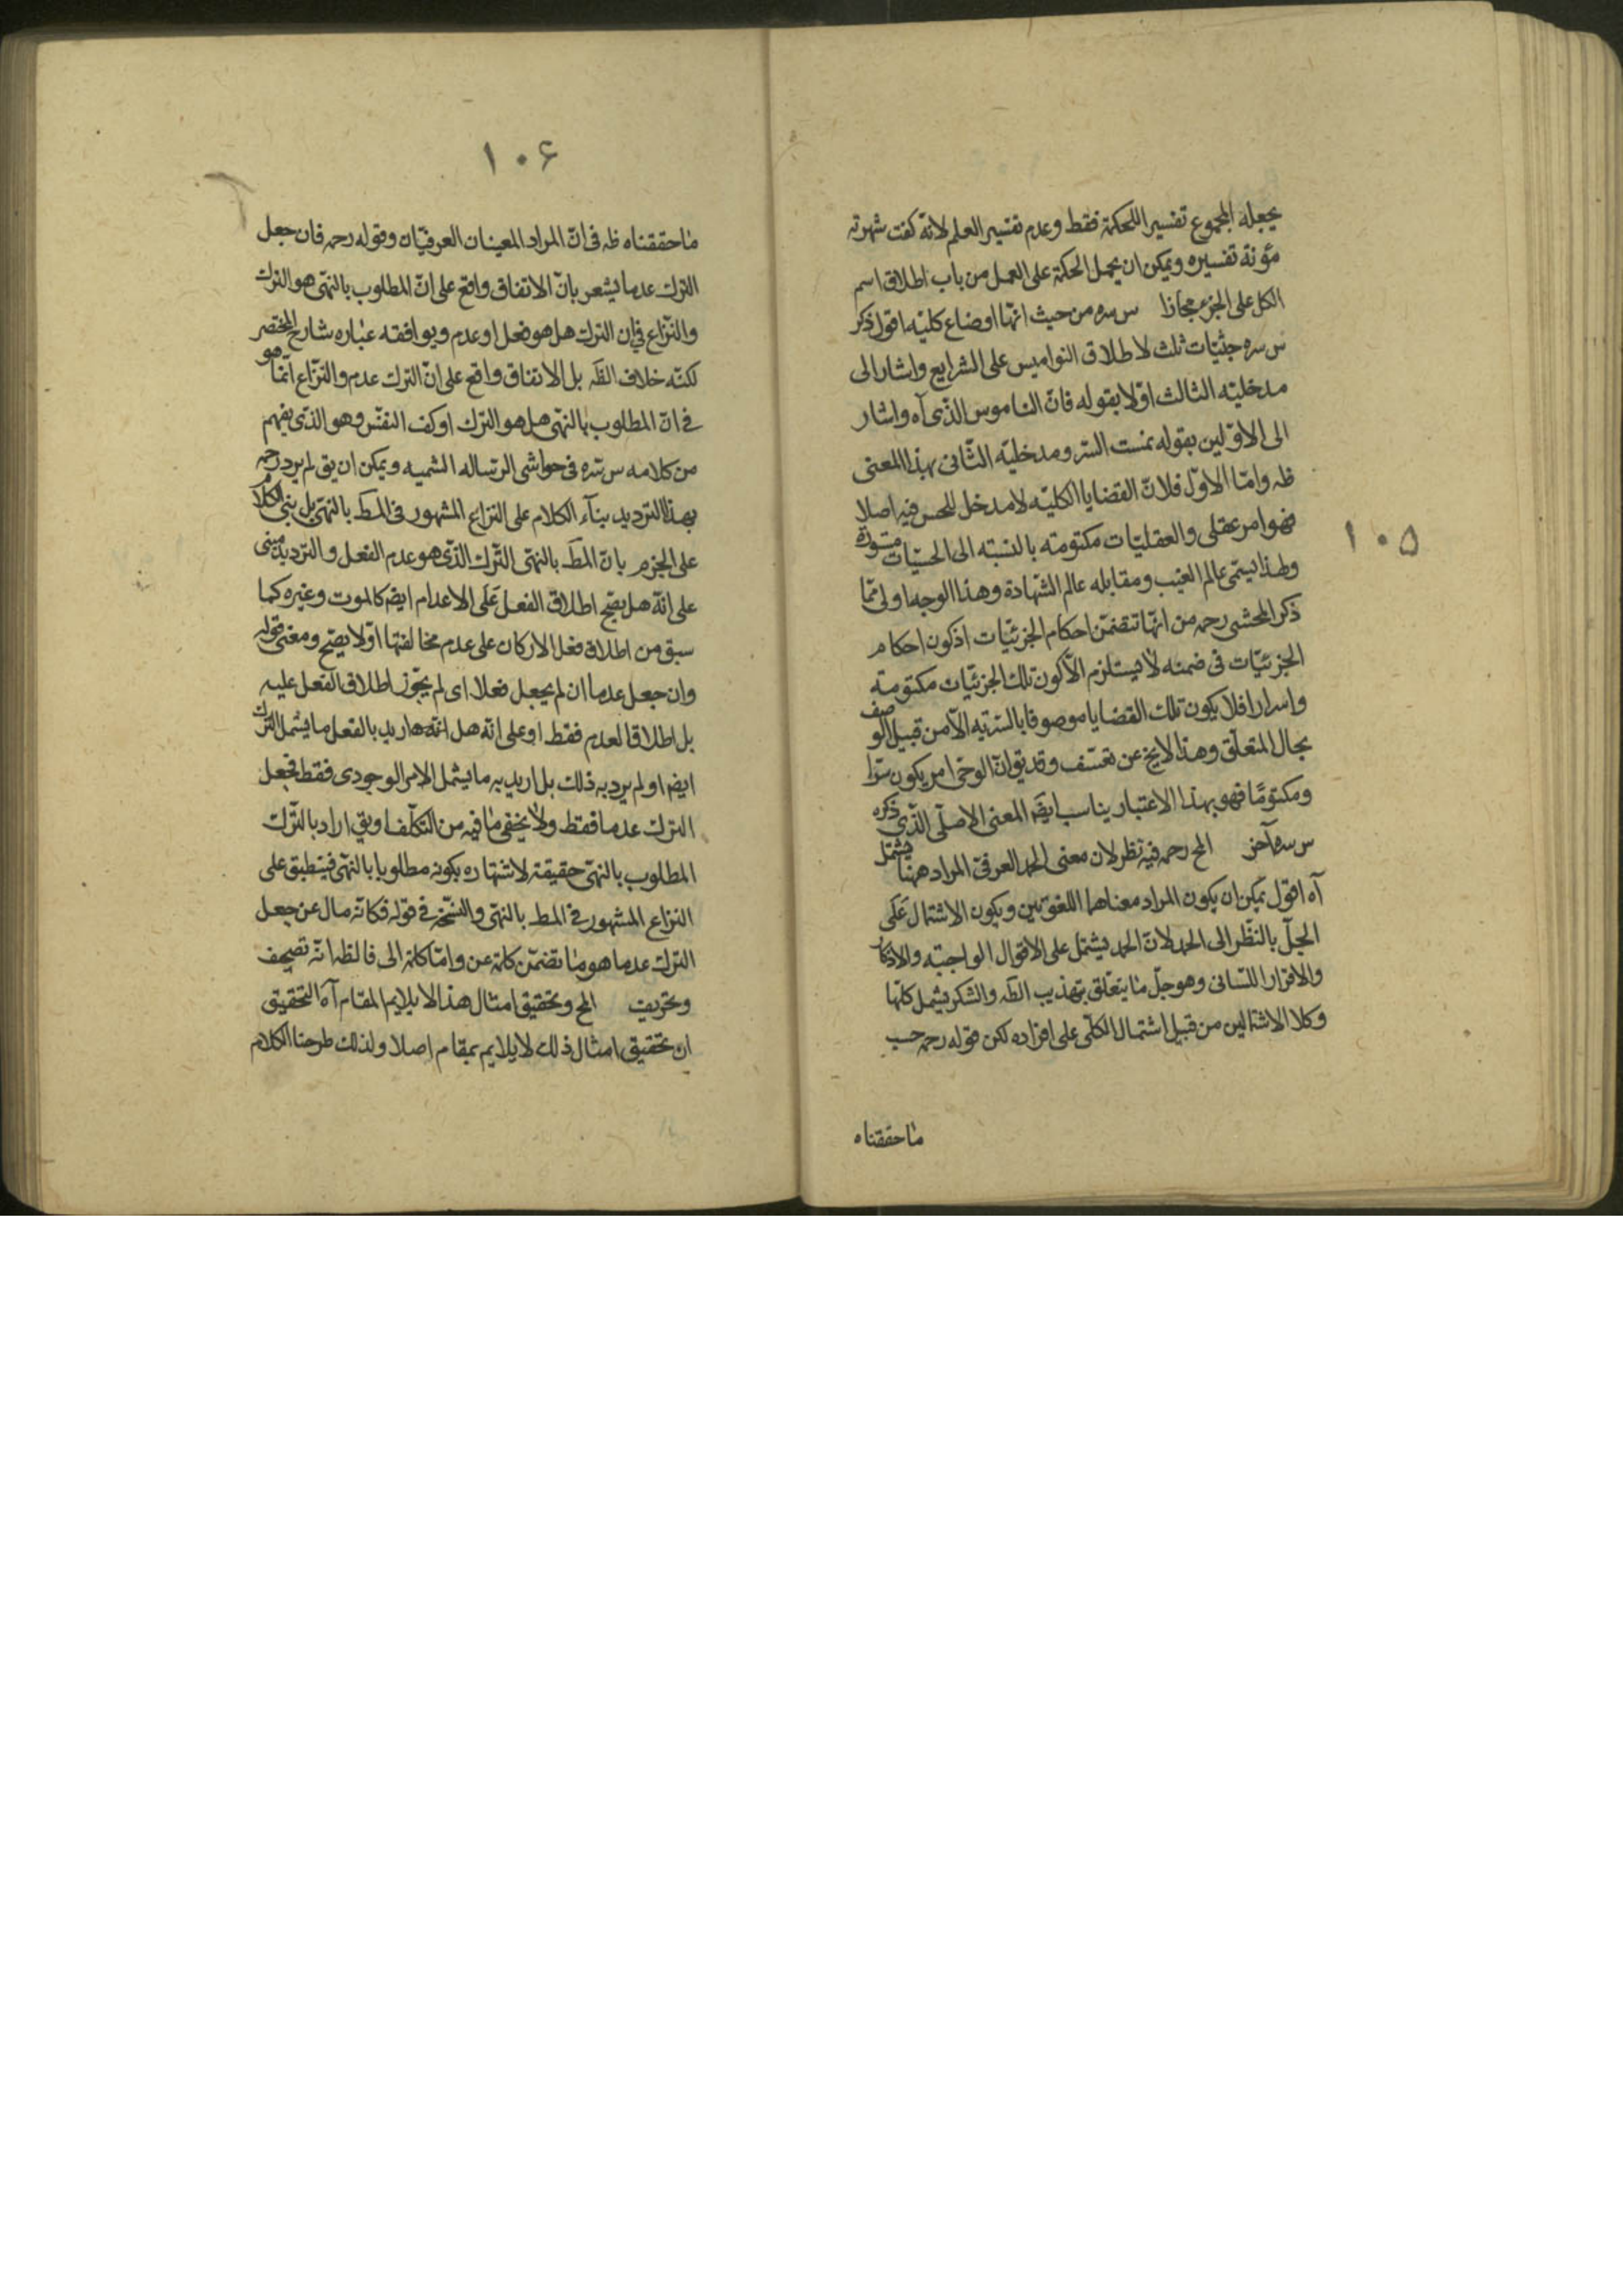 يجعله المجموع تفسيرا للحكمة فقط وعدم تفسير العلم لانه كفت شهرته
مؤنة تفسيره ويمكن ان يحمل الحكمة على العمل من باب اطلاق اسم
الكل على الجزء مجازا س سره من حيث انها اوضاع كليه اقول ذكر
س سره حيثيات ثلث لاطلاق النواميس على الشرايع واشار الى
مدخلية الثالث اولا بقوله فان الناموس الذى آه واشار
الى الاولين بقوله نمست السر ومدخلية الثانى بهذا المعنى
ظه واما الاول فلان القضايا الكليه لا مدخل للحس فيه اصلا
فهو امر عقلى والعقليات مكتومته بالنسبته الى الحسيات مستورة
ولهذا يسمى عالم الغيب ومقابله عالم الشهادة وهذا الوجه اولى مما
ذكر المحشى رحمه من انها تتضمن احكام الجزئيات اذ كون احكام
الجزئيات فى ضمنه لا يستلزم الا كون تلك الجزئيات مكتومته
واسرارا فلا يكون تلك القضايا موصوفا بالسرية الا من قبيل الوصف
بحال المتعلق وهذا لايخ عن تعسف وقد يق ان الوحى امر يكون سرا
ومكتوما فهو بهذا الاعتبار يناسب ايضه المعنى الاصلى الذى ذكره
س سره آخر المح رحمه فيه نظر لان معنى الحمد العرفى المراد ههنا يشتمل
آه اقول يمكن ان يكون المراد معناهما اللغويين ويكون الاشتمال على
الجل بالنظر الى الحمد لان الحمد يشتمل على الاقوال الواجبته والاذكار
والاقرار اللسانى وهو جل ما يتعلق بتهذيب الظه والشكر يشمل كلها
وكلا الاشتمالين من قبيل اشتمال الكلى على افراده لكن قوله رحمه حسب
ما حققناه
١٠٥
١٠۶
ما حققناه ظه فى ان المراد المعينان العرفيان وقوله رحمه فان جعل
الترك عدما يشعر بان الاتفاق واقع على ان المطلوب بالنهى هو الترك
والنزاع فى ان الترك هل هو فعل او عدم ويوافقه عباره شارح المختصر
لكنه خلاف الظه بل الاتفاق واقع على ان الترك عدم والنزاع انما هو
فى ان المطلوب بالنهى هل هو الترك او كف النفس وهو الذى يفهم
من كلامه س سره فى حواشى الرساله الشميه ويمكن ان يق لم يرد رحمه
بهذا الترديد بناء الكلام على النزاع المشهور فى المط بالنهى بل بنى الكلام
على الجزم بان المط بالنهى الترك الذى هو عدم الفعل والترديد مبنى
على انه هل يصح اطلاق الفعل على الاعدام ايضه كالموت وغيره كما
سبق من اطلاق فعل الاركان على عدم مخالفتها اولا يصح ومعنى قوله
وان جعل عدما ان لم يجعل فعلا اى لم يجوز اطلاق الفعل عليه
بل اطلاقا لعدم فقط او على انه هل اريد بالفعل ما يشمل الترك
ايضه او لم يرد به ذلك بل اريد به ما يشمل الامر الوجودى فقط فجعل
الترك عدما فقط ولا يخفى ما فيه من التكلف او يق اراد بالترك
المطلوب بالنهى حقيقة لاشتهاره بكونه مطلوبا بالنهى فينطبق على
النزاع المشهور فى المط بالنهى والنسخه فى قوله فكانه مال عن جعل
الترك عدما هو ما تضمن كلمة عن واما كلمة الى فالظه انه تصحيف
وتحريف المح وتحقيق امثال هذا لا يلايم المقام آه التحقيق
ان تحقيق امثال ذلك لا يلايم بمقام اصلا ولذلك طرحنا الكلام